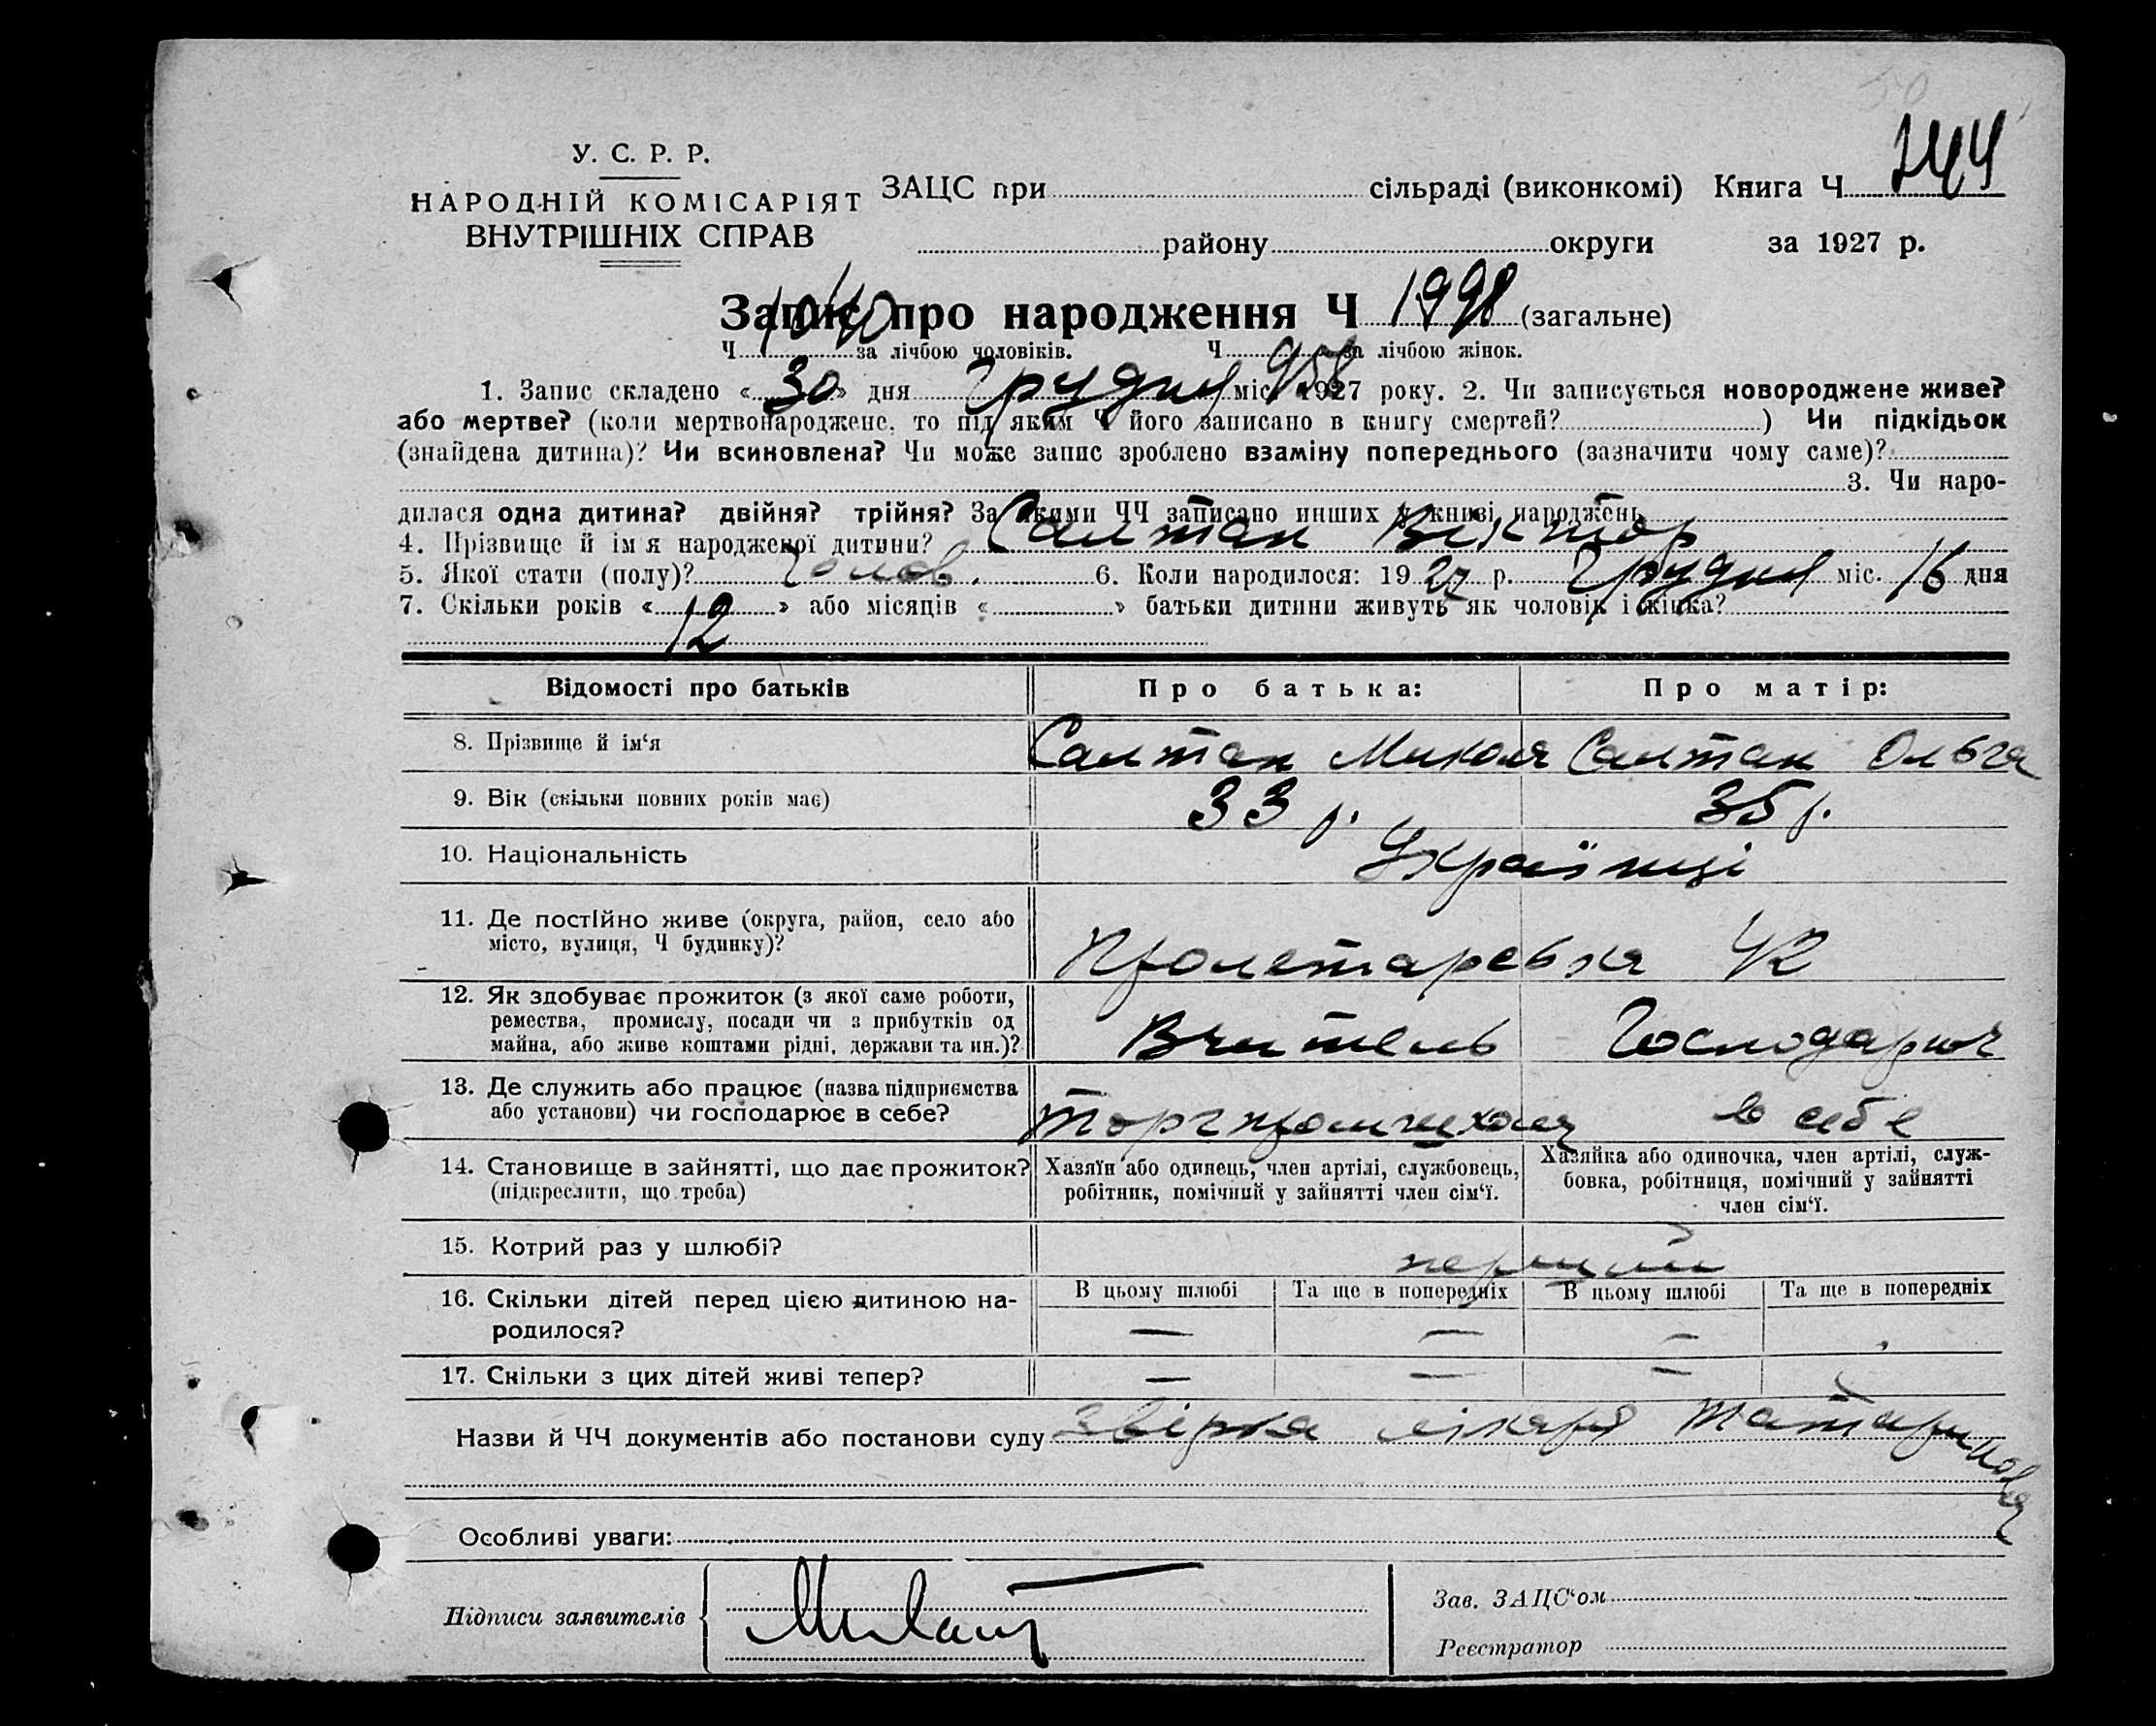 У. С. Р. Р.
НАРОДНІЙ КОМІСАРІЯТ
ВНУТРІШНІХ СПРАВ
ЗАЦС при сільраді (виконкомі) Книга Ч 244
району округи за 1927 р.
Запис про народження Ч 1998 (загальне)
Ч 1040 за лічбою чоловіків. Ч 958 за лічбою жінок.
1. Запис складено «30» дня Грудня міс. 1927 року. 2. Чи записується новороджене живе?
або мертве? (коли мертвонароджене, то під яким Ч його записано в книгу смертей? ) Чи підкідьок
(знайдена дитина)? Чи всиновлена? Чи може запис зроблено взаміну попереднього (зазначити чому саме)?
3. Чи наро-
дилася одна дитина? двійня? трійня? За якими ЧЧ записано инших у книзі народжень
4. Прізвище й ім'я народженої дитини? Салтан Віктор
5. Якої стати (полу)? Чолов. 6. Коли народилося: 1927 р. Грудня міс. 16 дня
7. Скільки років «12» або місяців « » батьки дитини живуть як чоловік і жінка?
Відомості про батьків Про батька: Про матір:
8. Прізвище й ім'я Салтан Микола Салтан Ольга
9. Вік (скільки повних років має) 33 р. 35 р.
10. Національність Українці
11. Де постійно живе (округа, район, село або
місто, вулиця, Ч будинку)? Пролетарська 42
12. Як здобуває прожиток (з якої саме роботи,
ремества, промислу, посади чи з прибутків од
майна, або живе коштами рідні, держави та ин.)? Вчитель Господарює
13. Де служить або працює (назва підприємства
або установи) чи господарює в себе? в себе
14. Становище в зайнятті, що дає прожиток?
(підкреслити, що треба)
Хазяїн або одинець, член артілі, службовець,
робітник, помічний у зайнятті член сім'ї.
Хазяйка або одиночка, член артілі, служ-
бовка, робітниця, помічний у зайнятті
член сім'ї.
15. Котрий раз у шлюбі? перший
16. Скільки дітей перед цією дитиною на-
родилося?
В цьому шлюбі Та ще в попередніх В цьому шлюбі Та ще в попередніх
— — —
17. Скільки з цих дітей живі тепер? — — —
Назви й ЧЧ документів або постанови суду лікаря
Особливі уваги:
Підписи заявителів
Зав. ЗАЦС'ом
Реєстратор